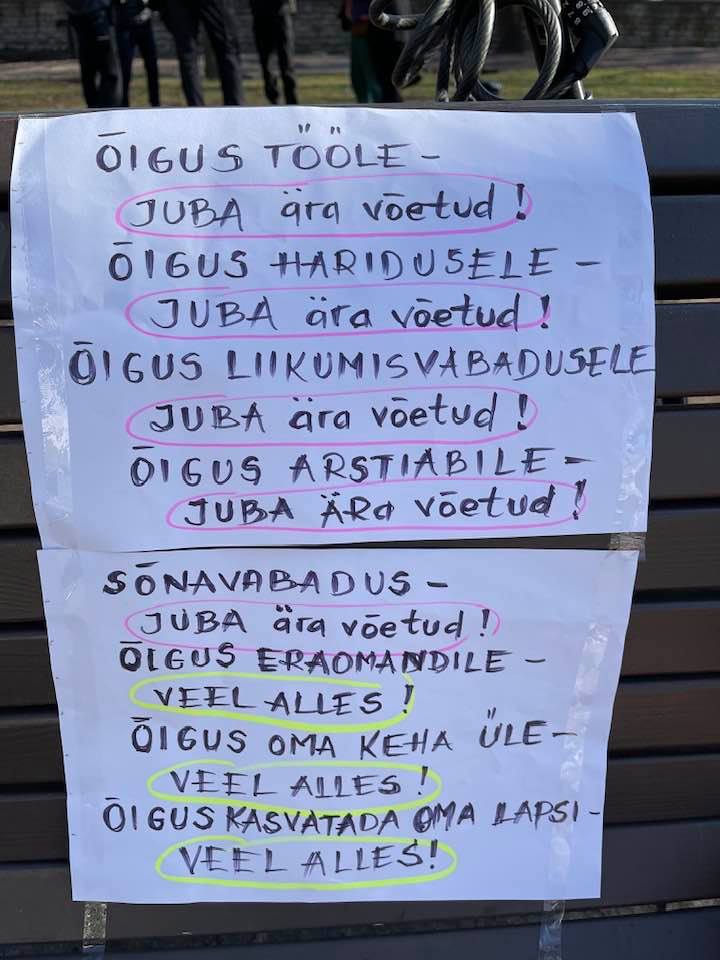 ÕIGUS TÖÖLE -
JUBA ära võetud!
ÕIGUS HARIDUSELE -
JUBA ära võetud!
ÕIGUS LIIKUMISVABADUSELE
JUBA ära võetud!
ÕIGUS ARSTIABILE -
JUBA ÄRa võetud!
SÕNAVABADUS -
JUBA ära võetud!
ÕIGUS ERAOMANDILE -
VEEL ALLES!
ÕIGUS OMA KEHA ÜLE -
VEEL ALLES!
ÕIGUS KASVATADA OMA LAPSI -
VEEL ALLES!